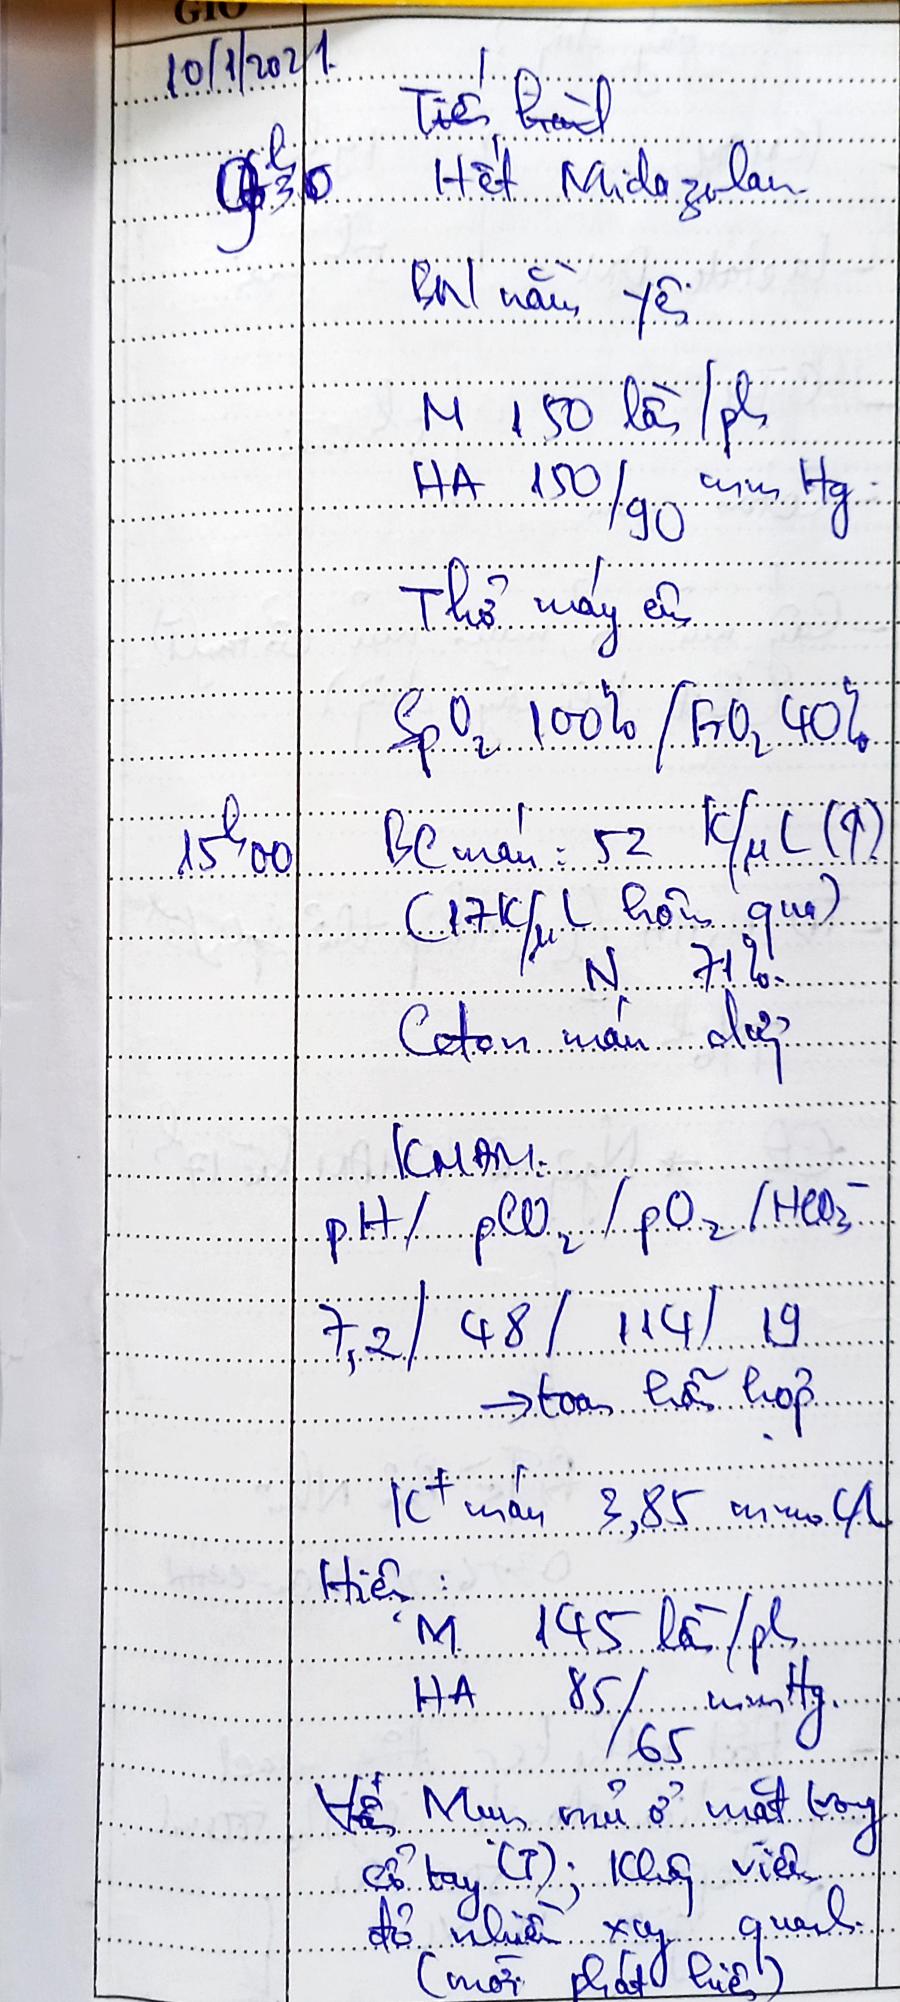 GIỜ
10/1/2021.
9h30 Hết Midazolam
BN nằm yên
M 150 lần/ph
HA 150/90 mmHg.
Thở máy êm
SpO2 100% / FiO2 40%
15h00 BC máu : 52 K/µL (↑)
(17K/µL hôm qua)
N 71%.
Ceton máu
KMĐM:
pH/ pCO2 / pO2 / HCO3-
7,2/ 48/ 114/ 19
→ toan hỗn hợp
K+ máu 3,85 mmol/L
Hiện :
M 145 lần/ph
HA 85/65 mmHg.
Mụn mủ ở mặt trong
cổ tay (T); Không viêm
đỏ nhiều xung quanh.
(mới phát hiện)